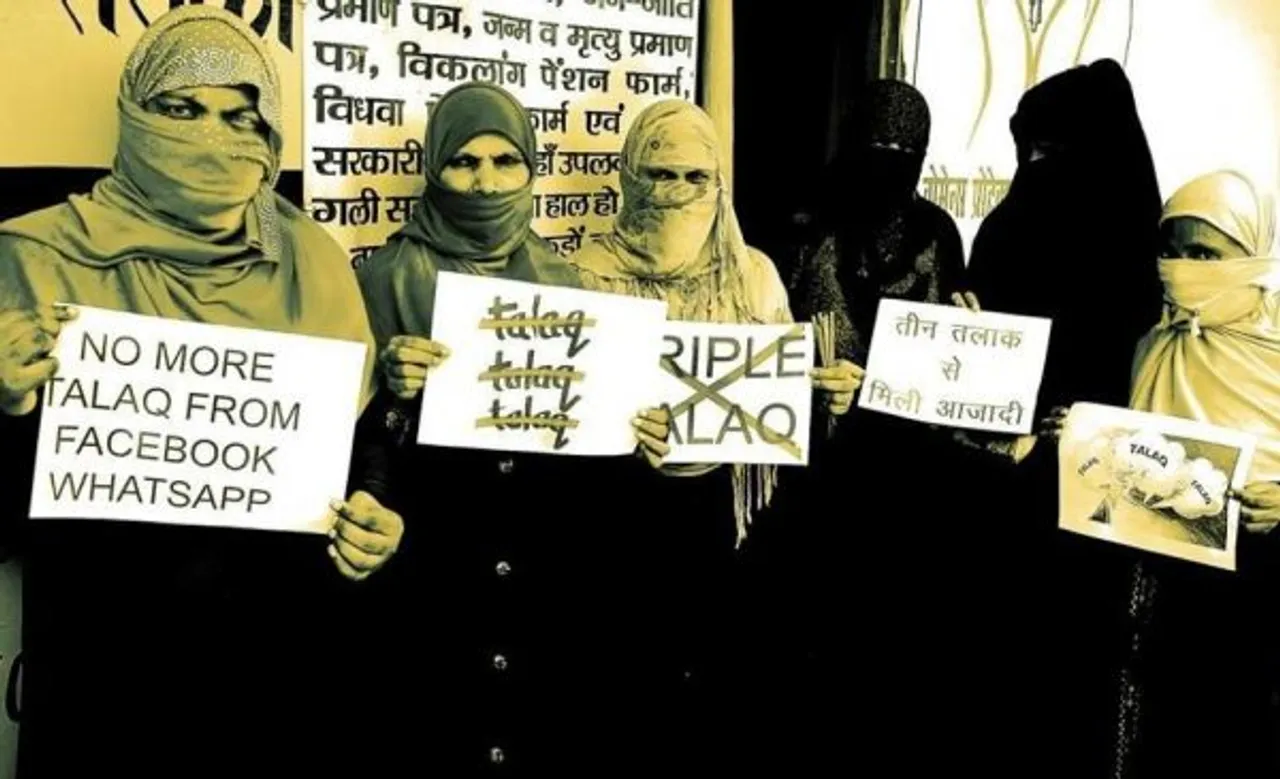 प्रमाण पत्र, जन्म व मृत्यु प्रमाण
पत्र, विकलांग पेंशन फार्म,
विधवा फार्म एवं
सरकारी यहाँ उपलब्ध
गली
हाल हो
NO MORE
TALAQ FROM
FACEBOOK
WHATSAPP
talaq
talaq
talaq
RIPLE
ALAQ
तीन तलाक
से
मिली आजादी
TALAQ
TALAQ
TALAQ